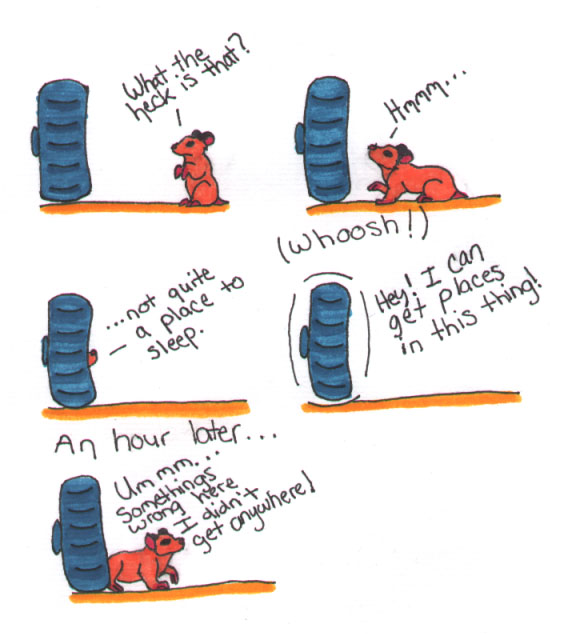 What the
heck is that?
Hmmm...
...not quite
a place to
sleep.
(Whoosh!)
Hey! I can
get places
in this thing!
An hour later...
Ummm...
Somethings
wrong here
I didn't
get anywhere!